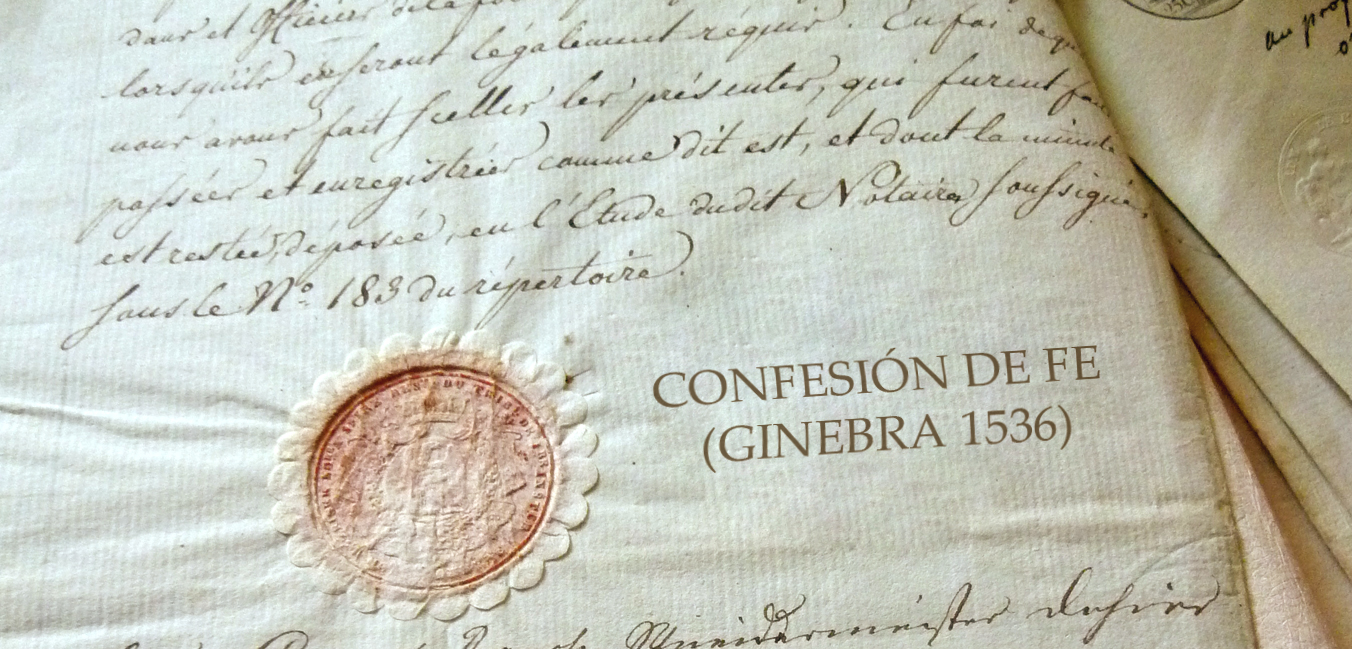 dans et Officiers de la fo
lorsqu'ils en seront légalement requis. En foi de q
nous avons fait sceller les présentes, qui furent fa
passées et enregistrées comme dit est, et dont la minute
est restée déposée, en l'Etude dudit Notaire soussigné,
sous le Nº 183 du répertoire.
CONFESIÓN DE FE
(GINEBRA 1536)
au pro